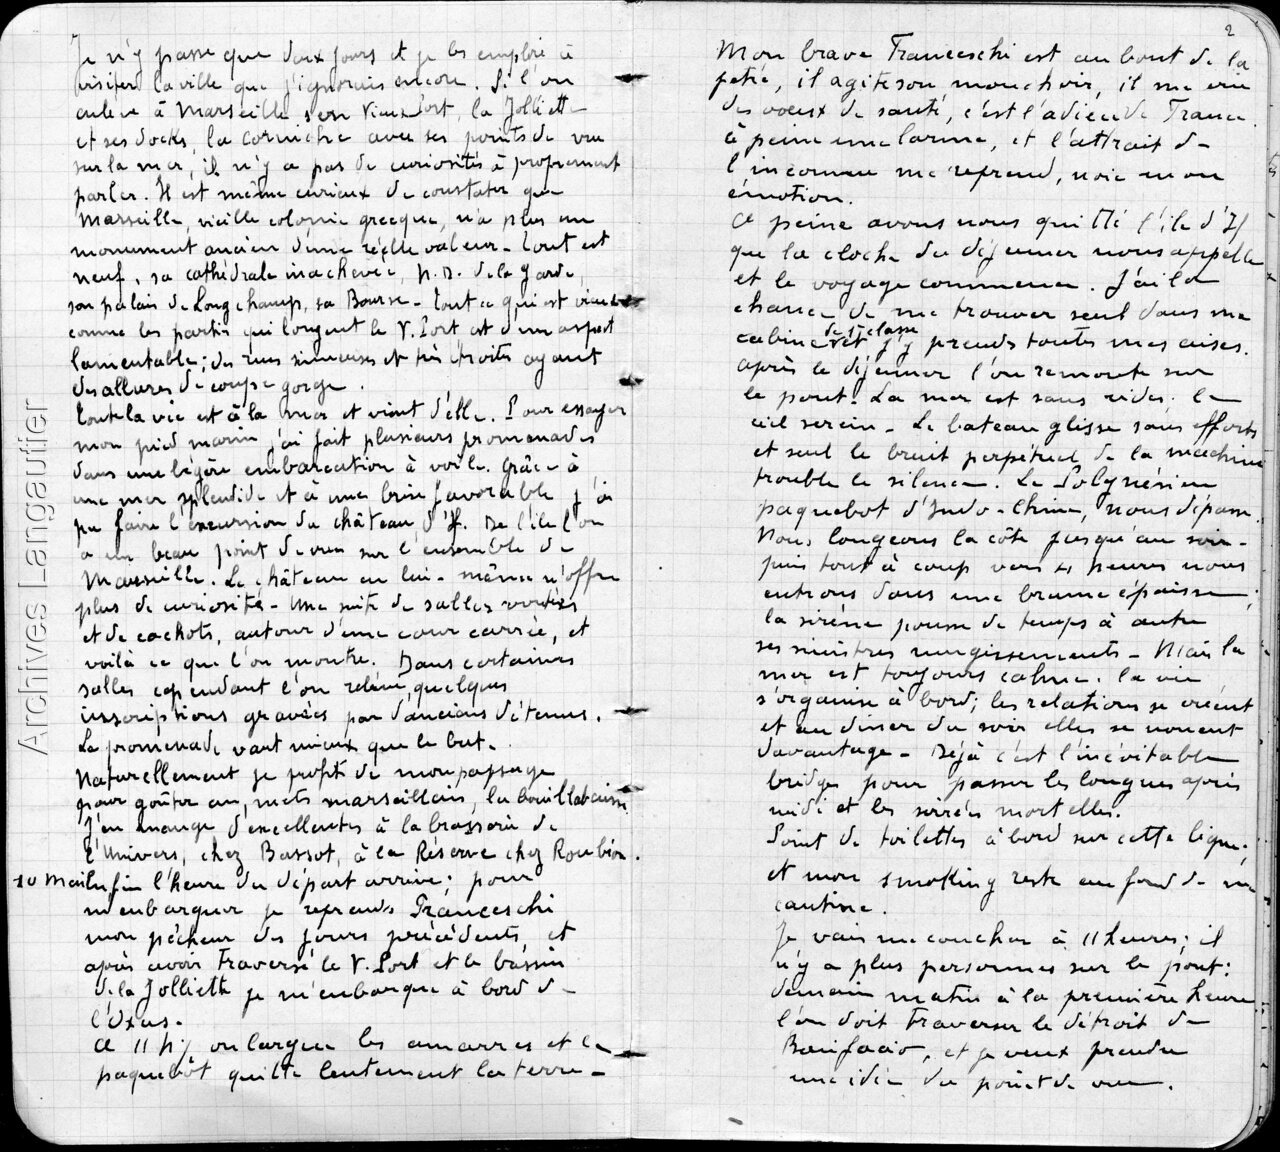 Je n'y passe que deux jours et je les emploie à
visiter la ville que j'ignorais encore. Si l'on
enlève à Marseille son Vieux Port, la Jolliette
et ses docks, la corniche avec ses points de vue
sur la mer, il n'y a pas de curiosités à proprement
parler. Il est même curieux de constater que
Marseille, vieille colonie grecque, n'a plus un
monument ancien d'une réelle valeur - tout est
neuf, sa cathédrale inachevée, N. D. de la Garde,
son palais de Longchamp, sa Bourse - tout ce qui est vieux
comme les parties qui longent le V. Port est d'un aspect
lamentable; des rues sinueuses et très étroites ayant
des allures de coupe gorge.
Toute la vie est à la mer et vient d'elle. Pour essayer
mon pied marin j'ai fait plusieurs promenades
dans une légère embarcation à voile. Grâce à
une mer splendide et à une brise favorable j'ai
pu faire l'excursion du château d'If. De l'île l'on
a un beau point de vue sur l'ensemble de
Marseille. Le château en lui-même n'offre
plus de curiosité - Une suite de salles voutées
et de cachots, autour d'une cour carrée, et
voilà ce que l'on montre. Dans certaines
salles cependant l'on relève quelques
inscriptions gravées par d'anciens détenus.
La promenade vaut mieux que le but.
Naturellement je profite de mon passage
pour goûter au mets marseillais, la bouillabaisse
J'en mange d'excellentes à la brasserie de
l'Univers, chez Bassot, à la Réserve chez Roubion.
10 Mai Enfin l'heure du départ arrive; pour
m'embarquer je reprends Franceschi
mon pêcheur des jours précédents, et
après avoir traversé le V. Port et le bassin
de la Jolliette je m'embarque à bord de
l'Oxus.
A 11 h ½ on largue les amarres et le
paquebot quitte lentement la terre -
2
Mon brave Franceschi est au bout de la
jetée, il agite son mouchoir, il me crie
des voeux de santé, c'est l'adieu de France.
à peine une larme, et l'attrait de
l'inconnu me reprend, noie mon
émotion.
A peine avons nous quitté l'île d'If
que la cloche du déjeuner nous appelle
et le voyage commence. J'ai la
chance de me trouver seul dans ma
cabine de 1e classe et j'y prends toutes mes aises.
après le déjeuner l'on remonte sur
le pont. La mer est sans rides, le
ciel serein - Le bateau glisse sans efforts
et seul le bruit perpétuel de la machine
trouble le silence. Le Polynésien
paquebot d'Indo-Chine, nous dépasse.
Nous longeons la côte jusqu'au soir -
puis tout à coup vers 4 heures nous
entrons dans une brume épaisse,
la sirène pousse de temps à autre
ses sinistres mugissements - Mais la
mer est toujours calme. la vie
s'organise à bord; les relations se créent
et au diner du soir elles se nouent
davantage - Déjà c'est l'inévitable
bridge pour passer les longues après
midi et les soirées mortelles.
Point de toilettes à bord sur cette ligne;
et mon smoking reste au fond de ma
cantine.
Je vais me coucher à 11 heures; il
n'y a plus personnes sur le pont:
demain matin à la première heure
l'on doit traverser le détroit de
Bonifacio, et je veux prendre
une idée du point de vue.
Archives Langautier